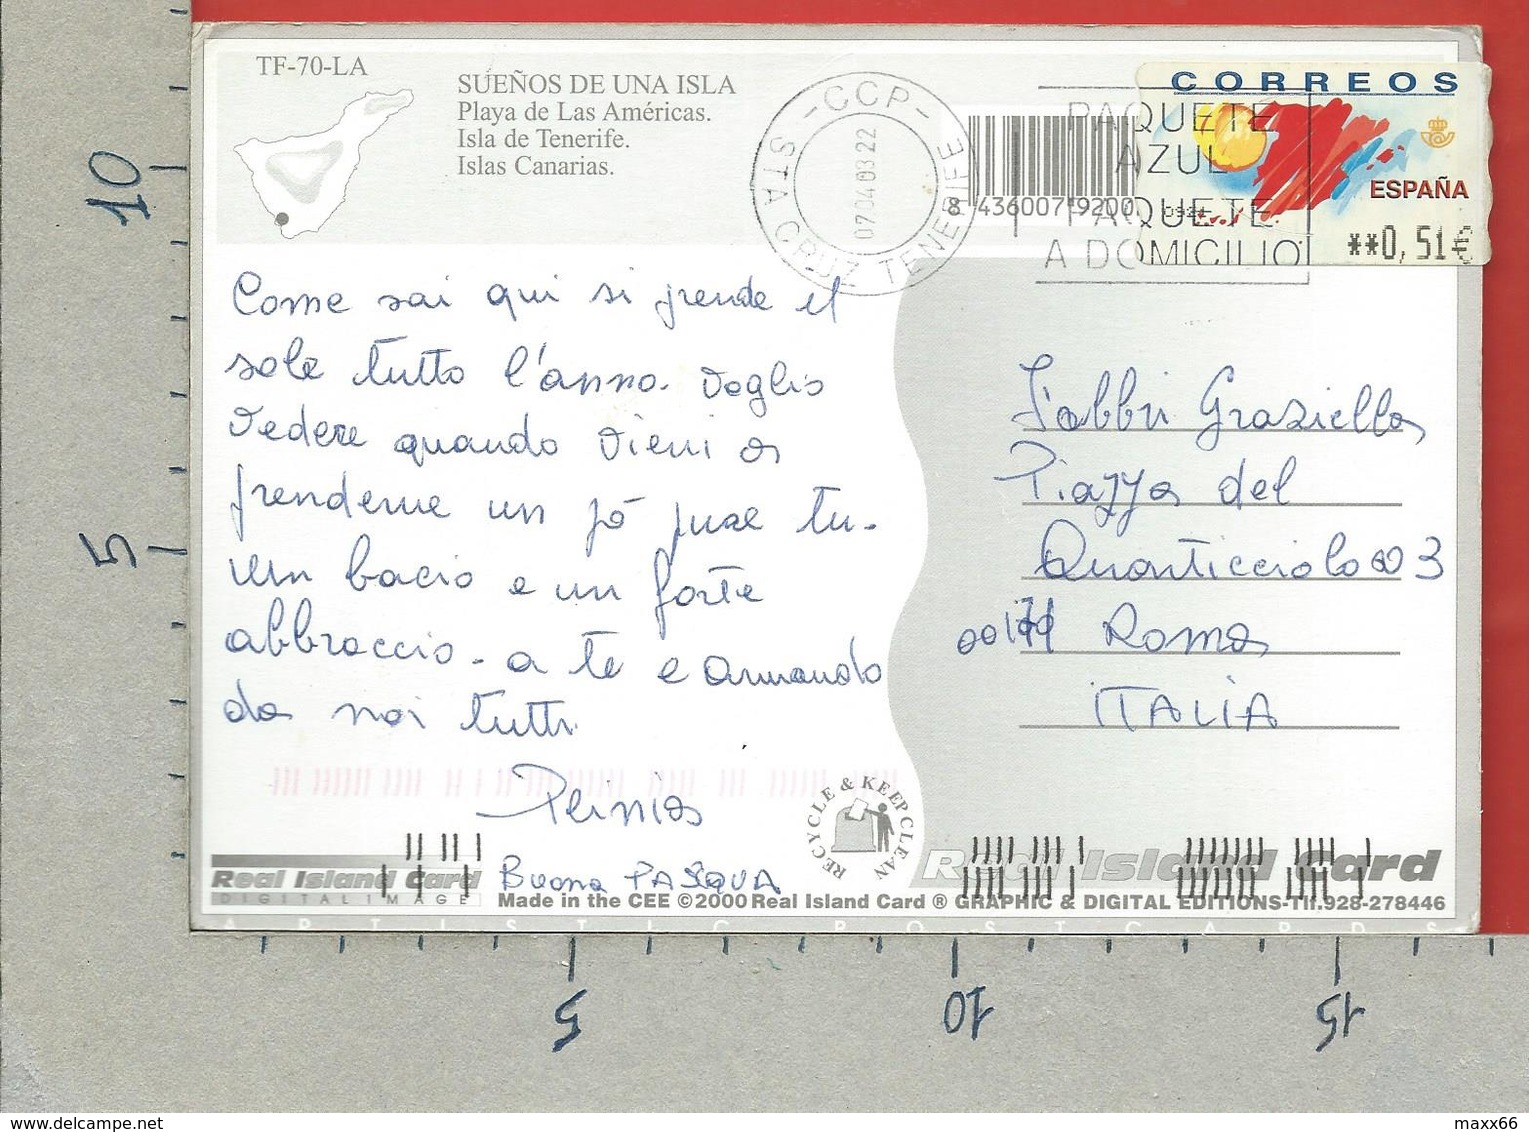 TF-70-LA
SUEÑOS DE UNA ISLA
Playa de Las Américas.
Isla de Tenerife.
Islas Canarias.
-CCP-
STA CRUZ TENERIFE
07.04 03 22
8 436007 9200
PAQUETE
AZUL
PAQUETE
A DOMICILIO
CORREOS
ESPAÑA
**0,51€
Come sai qui si prende el
sole tutto l'anno. Voglio
vedere quando vieni a
prenderne un pó pure tu.
un bacio e un forte
abbraccio - a te e armando
da noi tutti.
Buona PASQUA
Fabbri Graziella
Piazza del
Quarticciolo 3
Roma
ITALIA
RECYCLE & KEEP CLEAN
Real Island Card
DIGITAL IMAGE
Real Island Card
Made in the CEE ©2000 Real Island Card ® GRAPHIC & DIGITAL EDITIONS-Tlf.928-278446
ARTISTIC POSTCARDS
10
5
5
10
15
maxx66